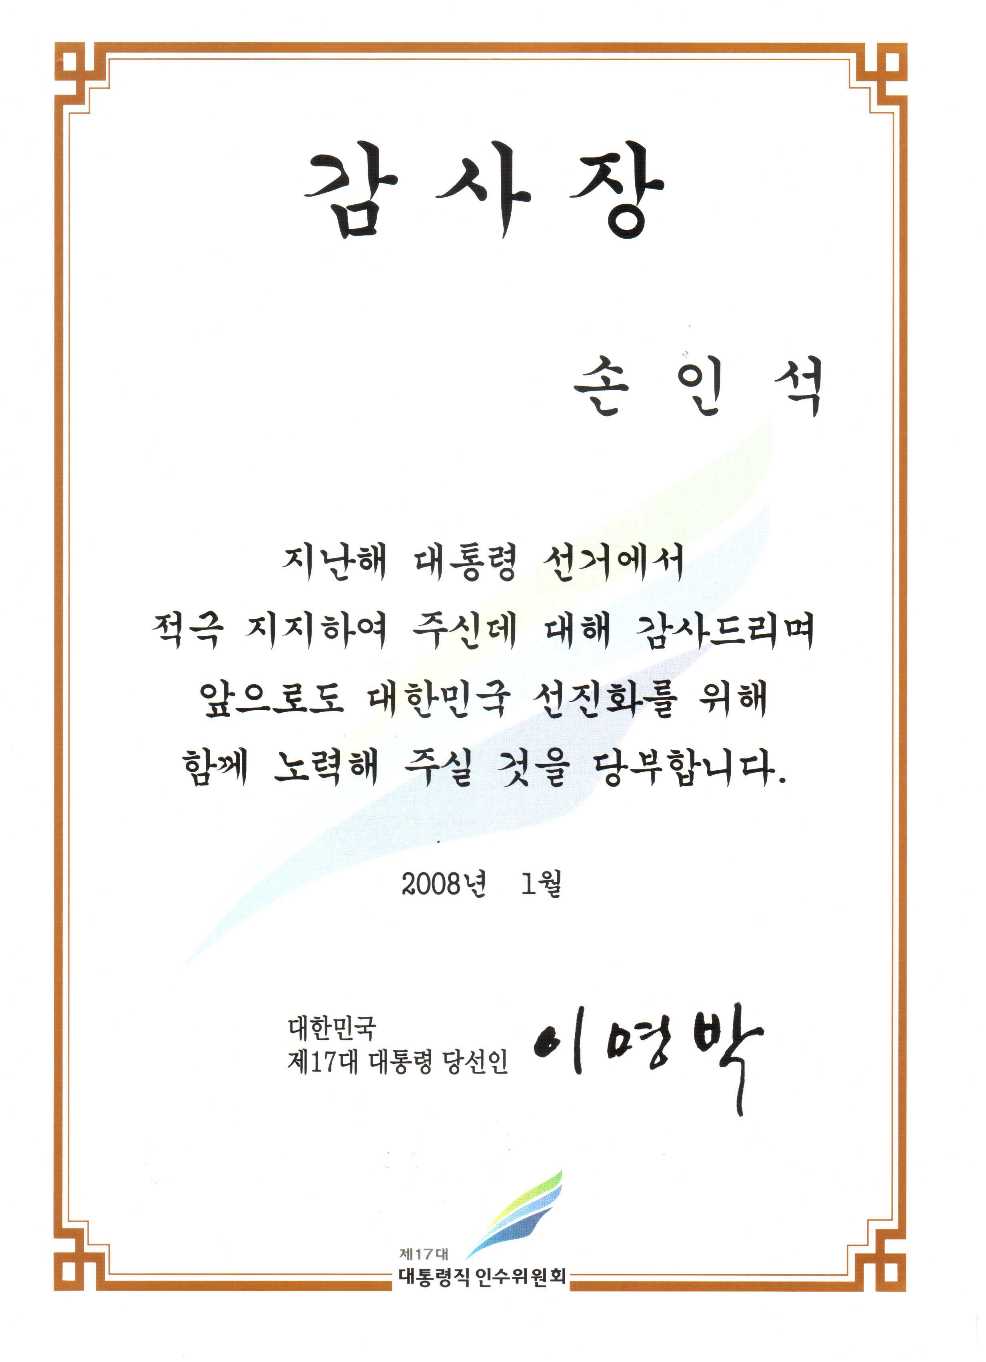 감사장
손인석
지난해 대통령 선거에서
적극 지지하여 주신데 대해 감사드리며
앞으로도 대한민국 선진화를 위해
함께 노력해 주실 것을 당부합니다.
2008년 1월
대한민국
제17대 대통령 당선인 이명박
제17대
대통령직 인수위원회